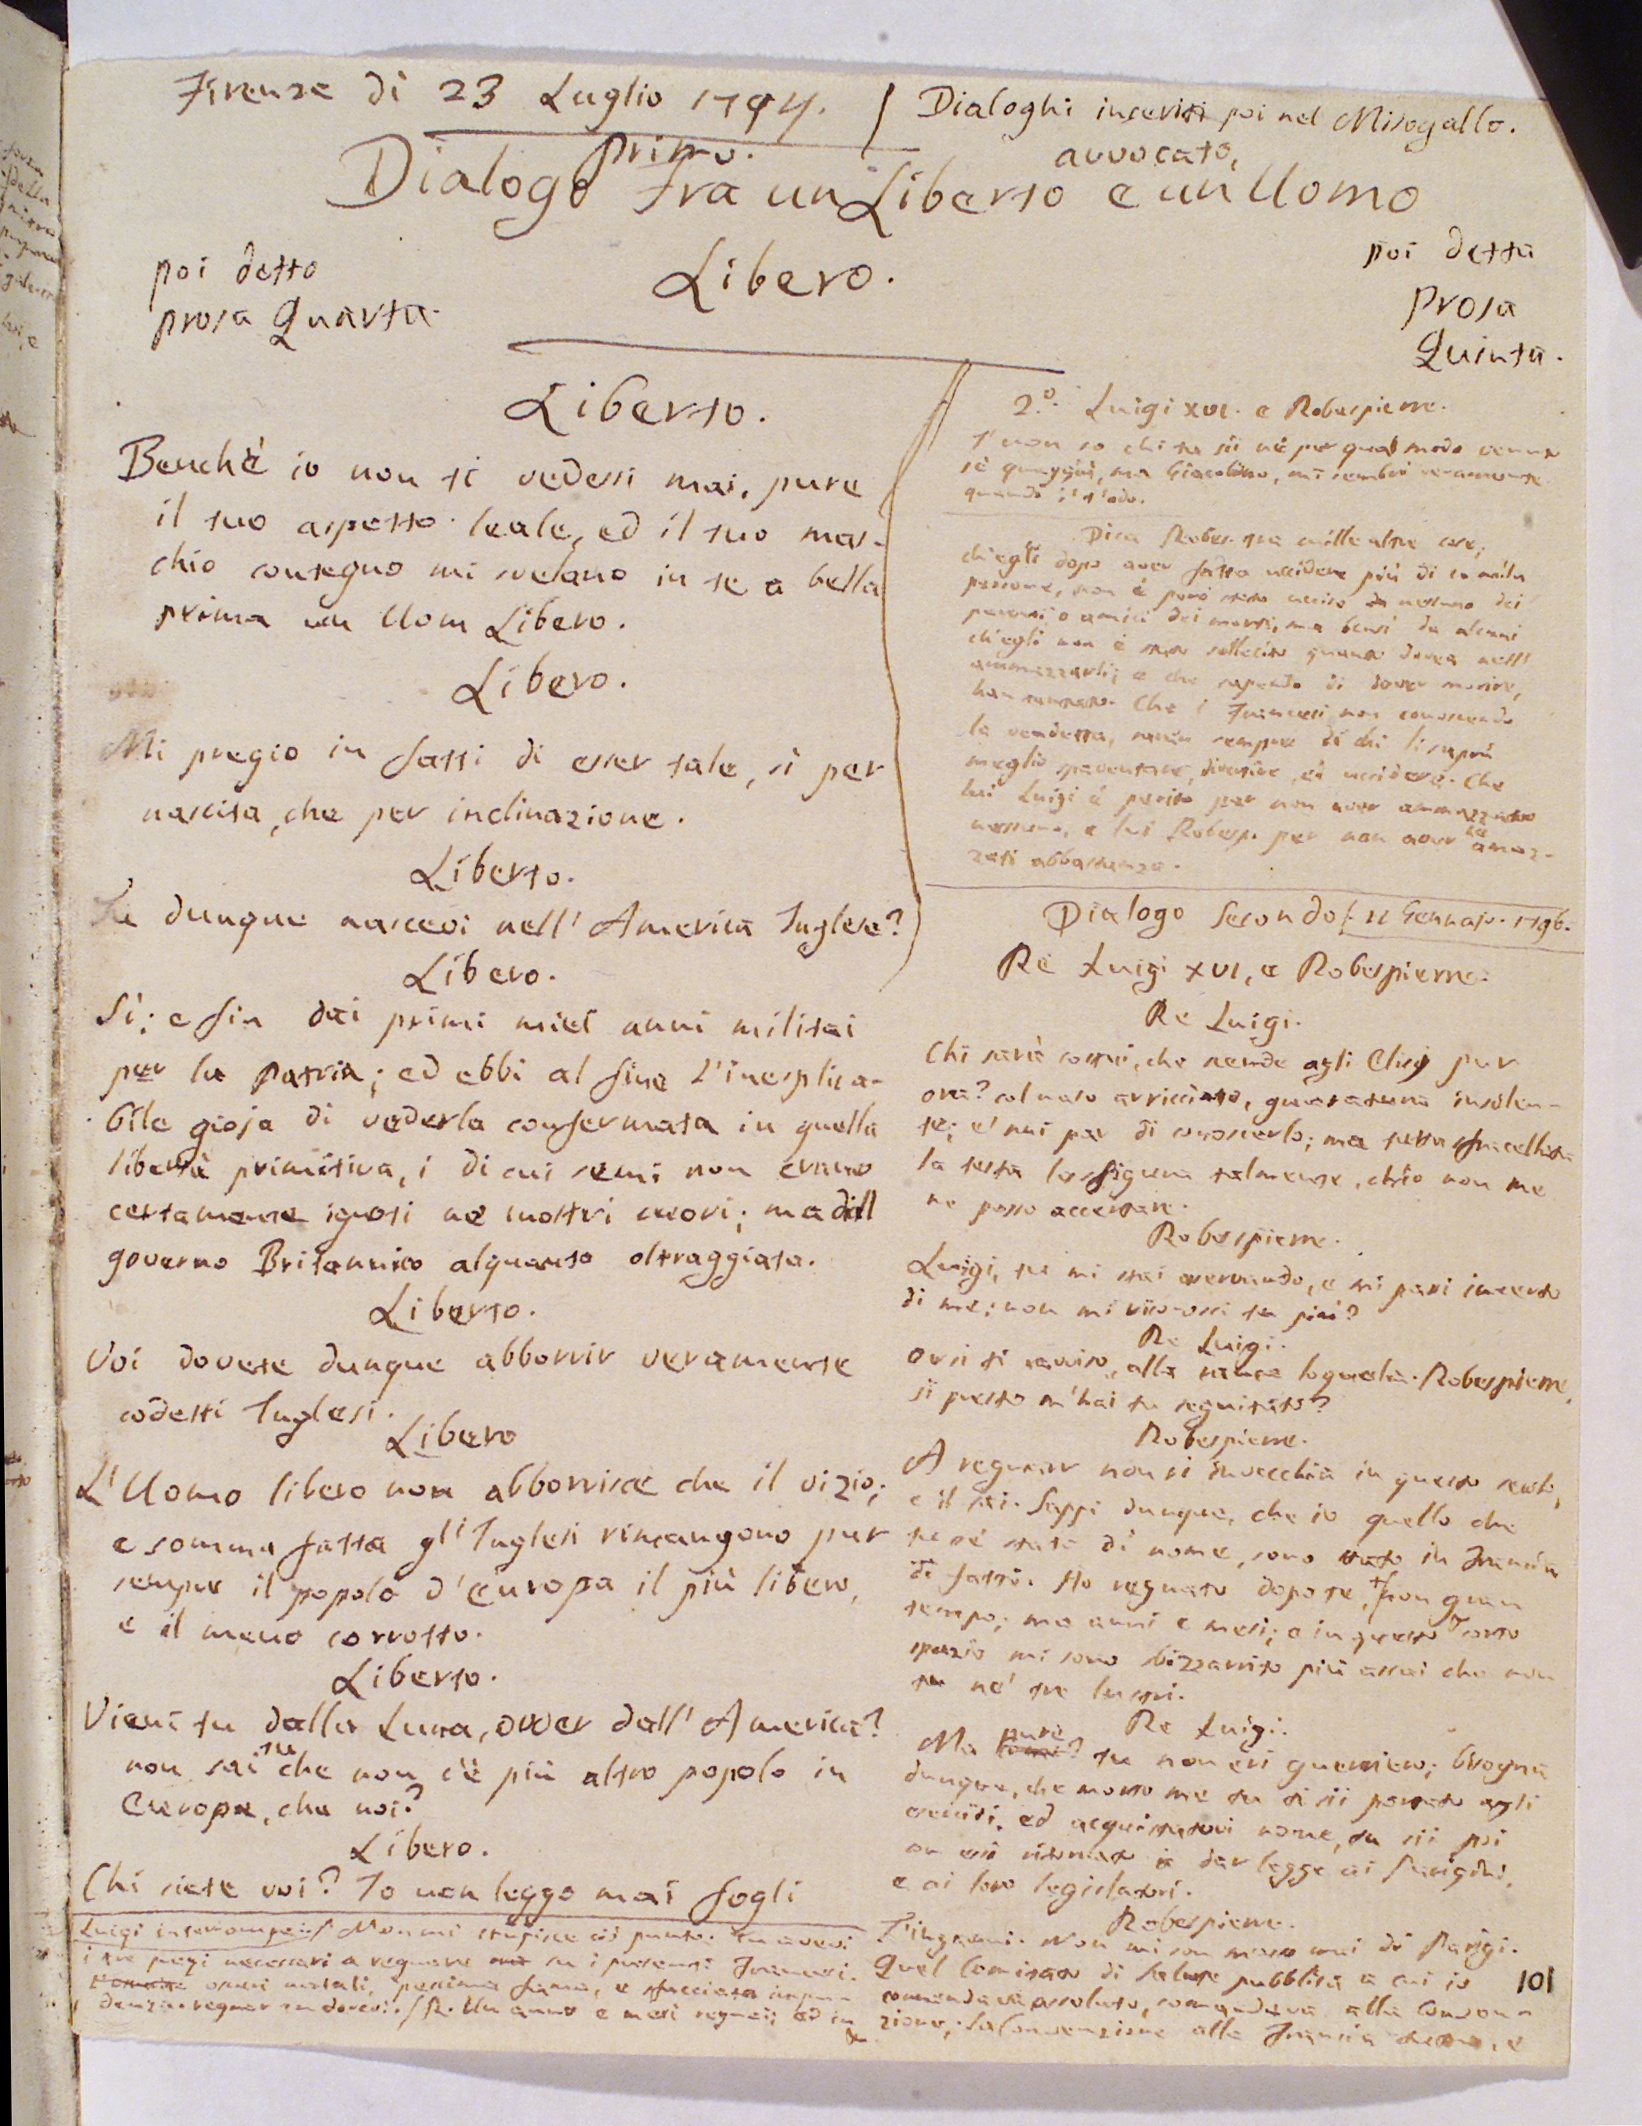 Firenze di 23 Luglio 1794.
Dialoghi inseriti poi nel Misogallo.
primo.
avvocato,
Dialogo Fra un Liberto e un Uomo
Libero.
poi detto
prosa Quarta.
poi detta
prosa
Quinta.
Liberto.
Benchè io non ti vedessi mai, pure
il tuo aspetto leale, ed il tuo mas-
chio contegno mi svelano in te a bella
prima un Uom Libero.
Libero.
Mi pregio in fatti di esser tale, sì per
nascita, che per inclinazione.
Liberto.
Tu dunque nascevi nell' America Inglese?
Libero.
Sì; e fin dai primi miei anni militai
per la Patria; ed ebbi al fine l'inesplica-
bile gioja di vederla confermata in quella
libertà primitiva, i di cui semi non erano
certamente ignoti ne' nostri cuori; ma dall
governo Britannico alquanto oltraggiata.
Liberto.
Voi dovete dunque abborrir veramente
codesti Inglesi.
Libero
L'Uomo libero non abborrisce che il vizio;
e somma fatta gl' Inglesi rimangono pur
sempre il popolo d'Europa il più libero,
e il meno corrotto.
Liberto.
Vieni tu dalla Luna, ovver dall' America?
non sai tu che non c'è più altro popolo in
Europa, che noi?
Libero.
Chi siete voi? Io non leggo mai fogli
Luigi interrompe:/ Non mi stupisce ciò punto. Tu avevi
i tre pregi necessari a regnare su i presenti Francesi.
natali, pessima fama, e sfacciata impu-
denza: regnar tu dovevi. / R. Un anno e mesi regnai; ed in
2.° Luigi XVI. e Robespierre.
I' non so chi tu sii nè per qual modo venuto
sè quaggiù, ma Giacobino, mi sembri veramente
quando i' t'odo.
Dica Robes. tra mille altre cose,
ch'egli dopo aver fatto uccidere più di mila
persone, non è però stato ucciso da nessuno dei
parenti o amici dei morti, ma bensì da alcuni
ch'egli non è stato sollecito quanto dovea nell'
ammazzarli; e che sapendo di dover morire,
han tentato. Che i Francesi non conoscendo
la vendetta, saran sempre di chi li saprà
meglio spaventare, divertire, ed uccidere. Che
lui Luigi è perito per non aver ammazzato
nessuno, e lui Robesp. per non aver ne amaz-
zati abbastanza.
Dialogo Secondo. 11 Gennajo. 1796.
Re Luigi XVI, e Robespierre.
Re Luigi.
Chi sarà costui, che scende agli Elisj pur
ora? col naso arricciato, guardatura insolen-
te; e' mi par di conoscerlo; ma sfracellata
la testa lo sfigura talmente, ch'io non me
ne posso accertare.
Robespierre.
Luigi, tu mi stai osservando, e mi pari incerto
di me; non mi riconosci tu più?
Re Luigi.
Or sì ti ravviso, alla loquela. Robespierre,
sì presto m'hai tu seguitato?
Robespierre.
A regnar non si invecchia in questo secolo,
e il sai. Sappi dunque, che io quello che
tu sé stato di nome, sono stato in Francia
di fatto. Ho regnato dopo te, non gran
tempo; ma anni e mesi; e in questo corto
spazio mi sono sbizzarrito più assai che non
tu ne' tre lustri.
Re Luigi.
Ma pure? tu non eri guerriero; bisogna
dunque, che morto me tu ti sii portato agli
eserciti, ed acquistatovi nome, tu sii poi
ritornato a dar legge ai Parigini,
e ai loro legislatori.
Robespierre.
T'inganni. Non mi son mosso mai di Parigi.
Quel Comitato di Salute pubblica a cui io
comandava assoluto, comandava alla Conven-
zione; la Convenzione alla Francia, e
101